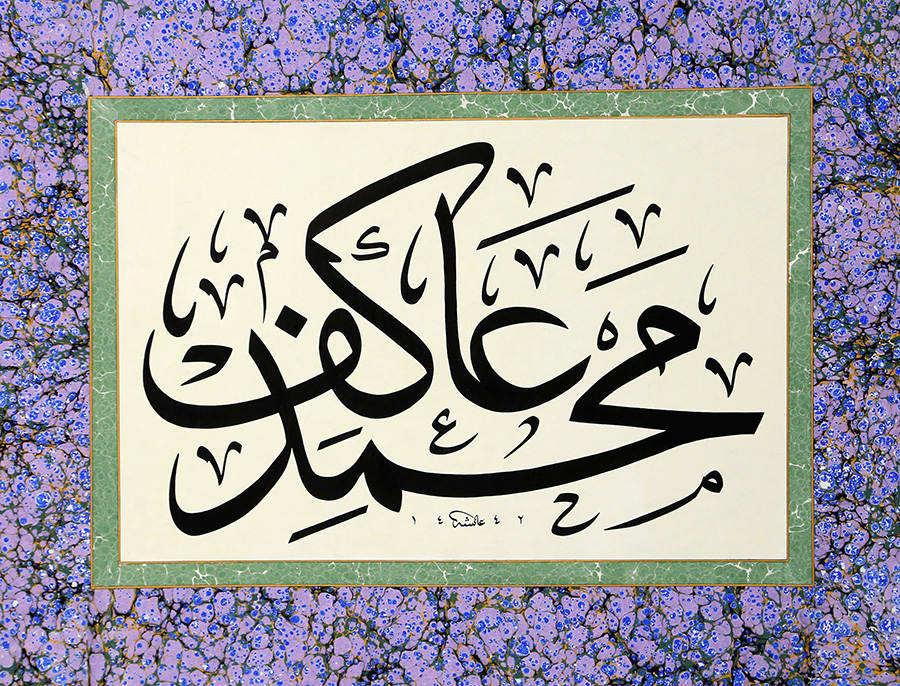 محمد عاكف
عائشه ١٤٤٢